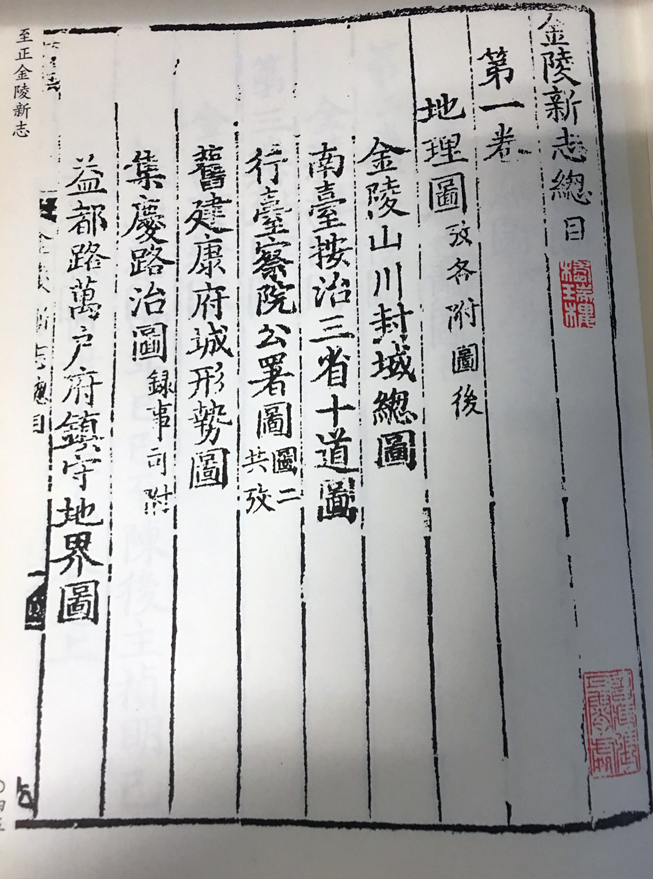 金陵新志總目
第一卷
地理圖 攷各附圖後
金陵山川封域總圖
南臺按治三省十道圖
行臺察院公署圖 圖二共攷
舊建康府城形勢圖
集慶路治圖 録事司附
益都路萬戶府鎮守地界圖
金陵新志總目
至正金陵新志